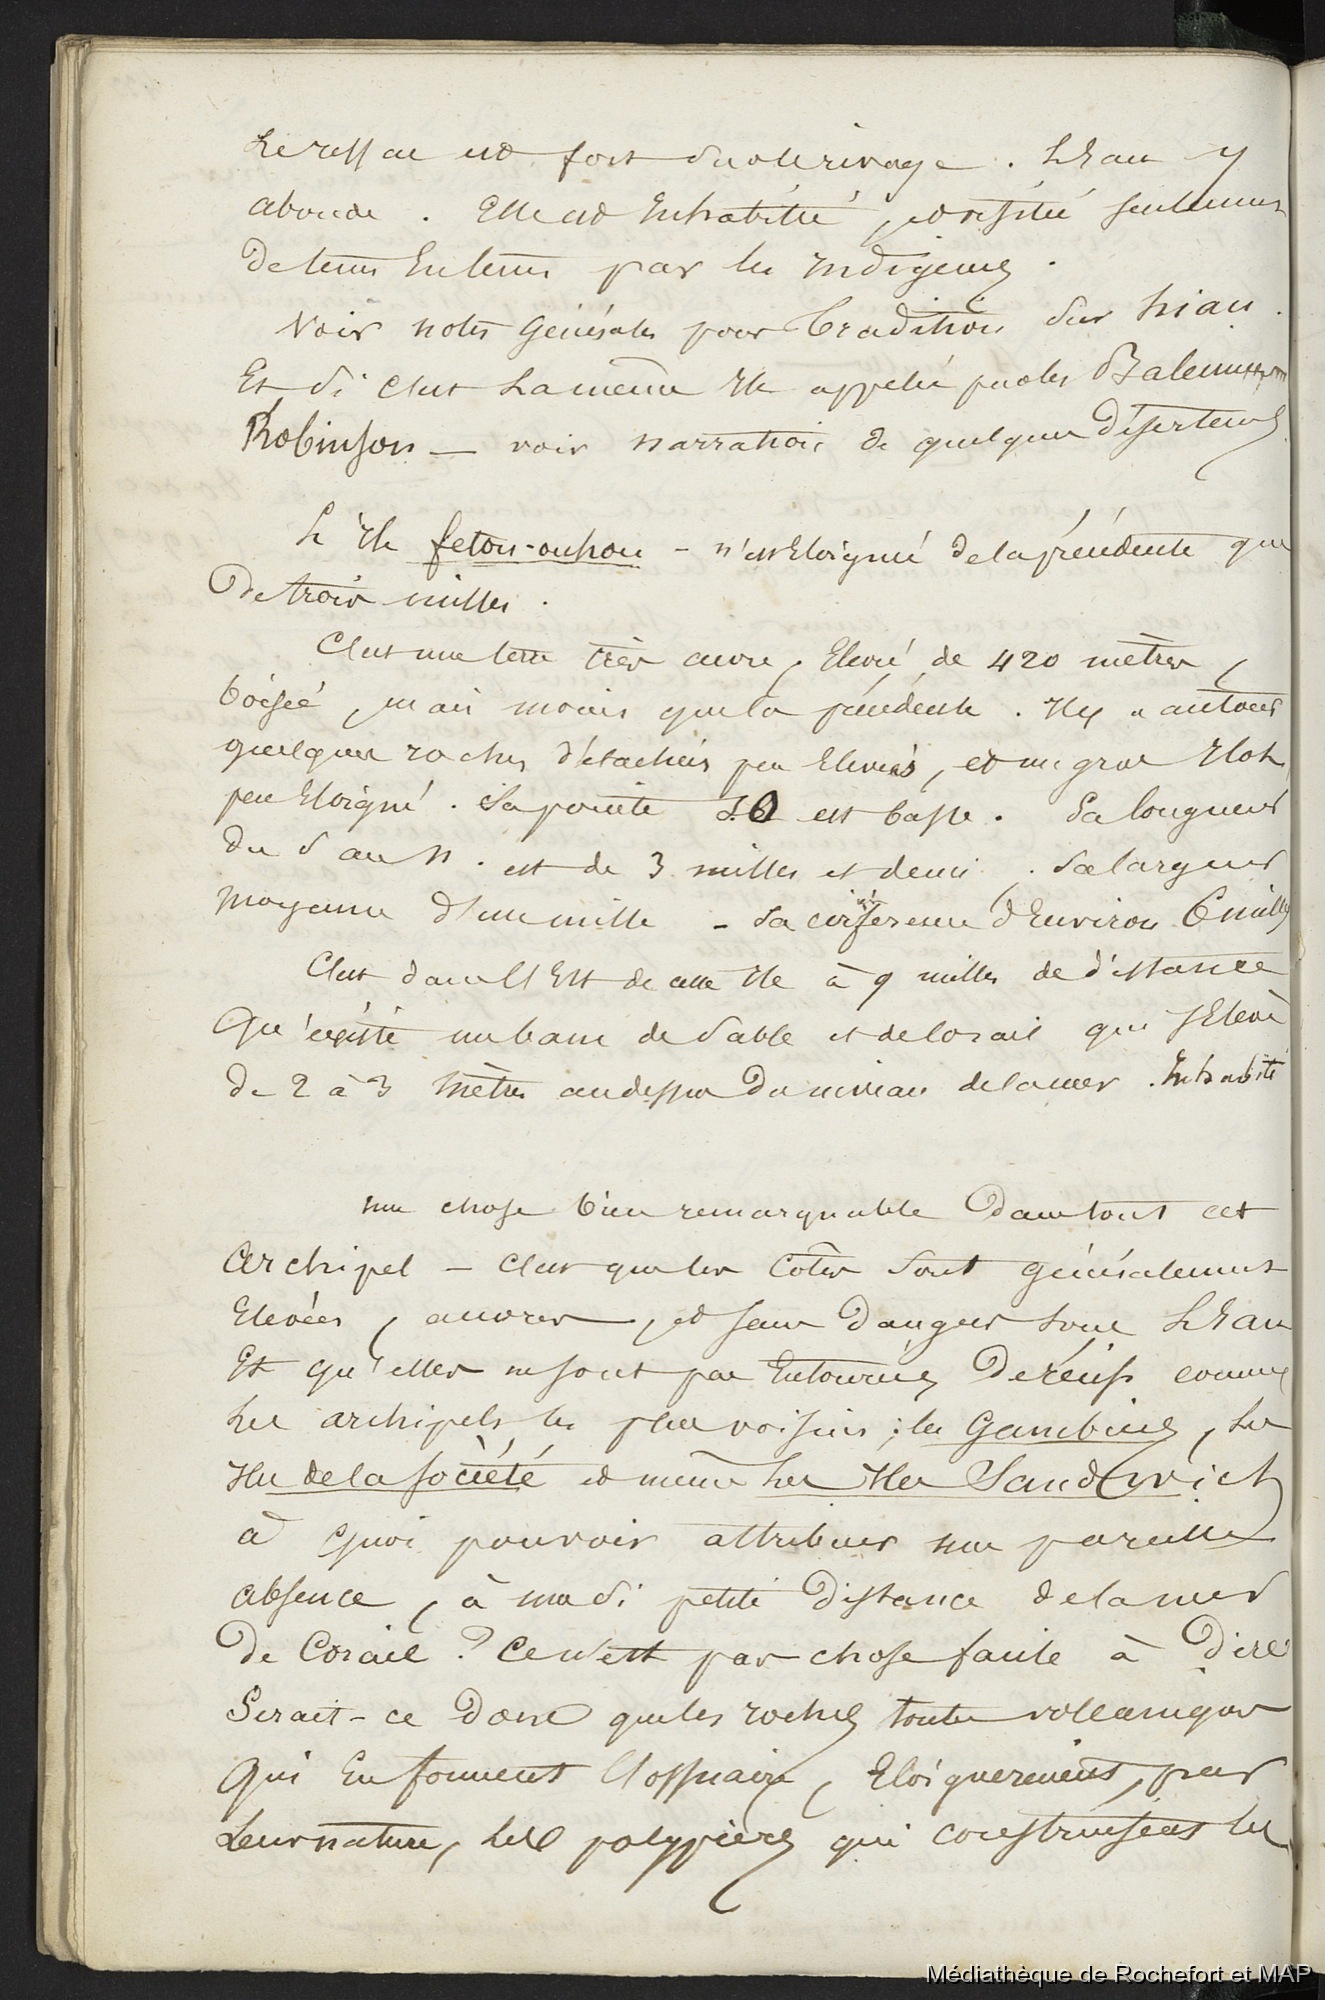 Le ressac est fort sur le rivage. L'Eau y
abonde. Elle est Inhabitée, et visitée seulement
de tems En tems par les Indigenes.
Voir notes Générales pour tradition sur hiau.
Et si c'est la même Ile appelée par les Baleiniers
Robinson — voir narration de quelques Déserteurs
L'Ile fetou-ouhou - n'est Eloignée de la précédente que
De trois milles.
C'est une terre très accore, Elevée de 420 mètres,
boisée, mais moins que la précédente. Il y a autour
quelques roches détachées peu Elevées, et un gros Ilot
peu Eloigné. Sa pointe S.O est basse. Sa longueur
du S au N. est de 3 milles et demi. Sa largeur
moyenne d'un mille - Sa circonference d'Environ 6 milles
C'est dans l'Est de cette Ile à 9 milles de distance
Qu'existe un banc de Sable et de Corail qui s'Eleve
de 2 à 3 mètres au dessus du niveau de la mer. Inhabité
une chose bien remarquable Dans tout cet
Archipel — C'est que les Côtes sont généralement
Elevées, accores, et sans Dangers sous L'Eau
Et qu'elles ne sont pas Entourées De récifs comme
Les archipels les plus voisins; les Gambiers, les
Iles de la Société et même Les Iles Sandwich
à Quoi pouvoir attribuer une pareille
absence, à une si petite Distance de la mer
De Corail? Ce n'est pas chose facile à Dire
Serait-ce Donc que les roches toutes volcaniques
Qui En forment l'ossuaire, Eloigneraient, par
Leur nature, Les polypiers qui construisent les
Médiathèque de Rochefort et MAP